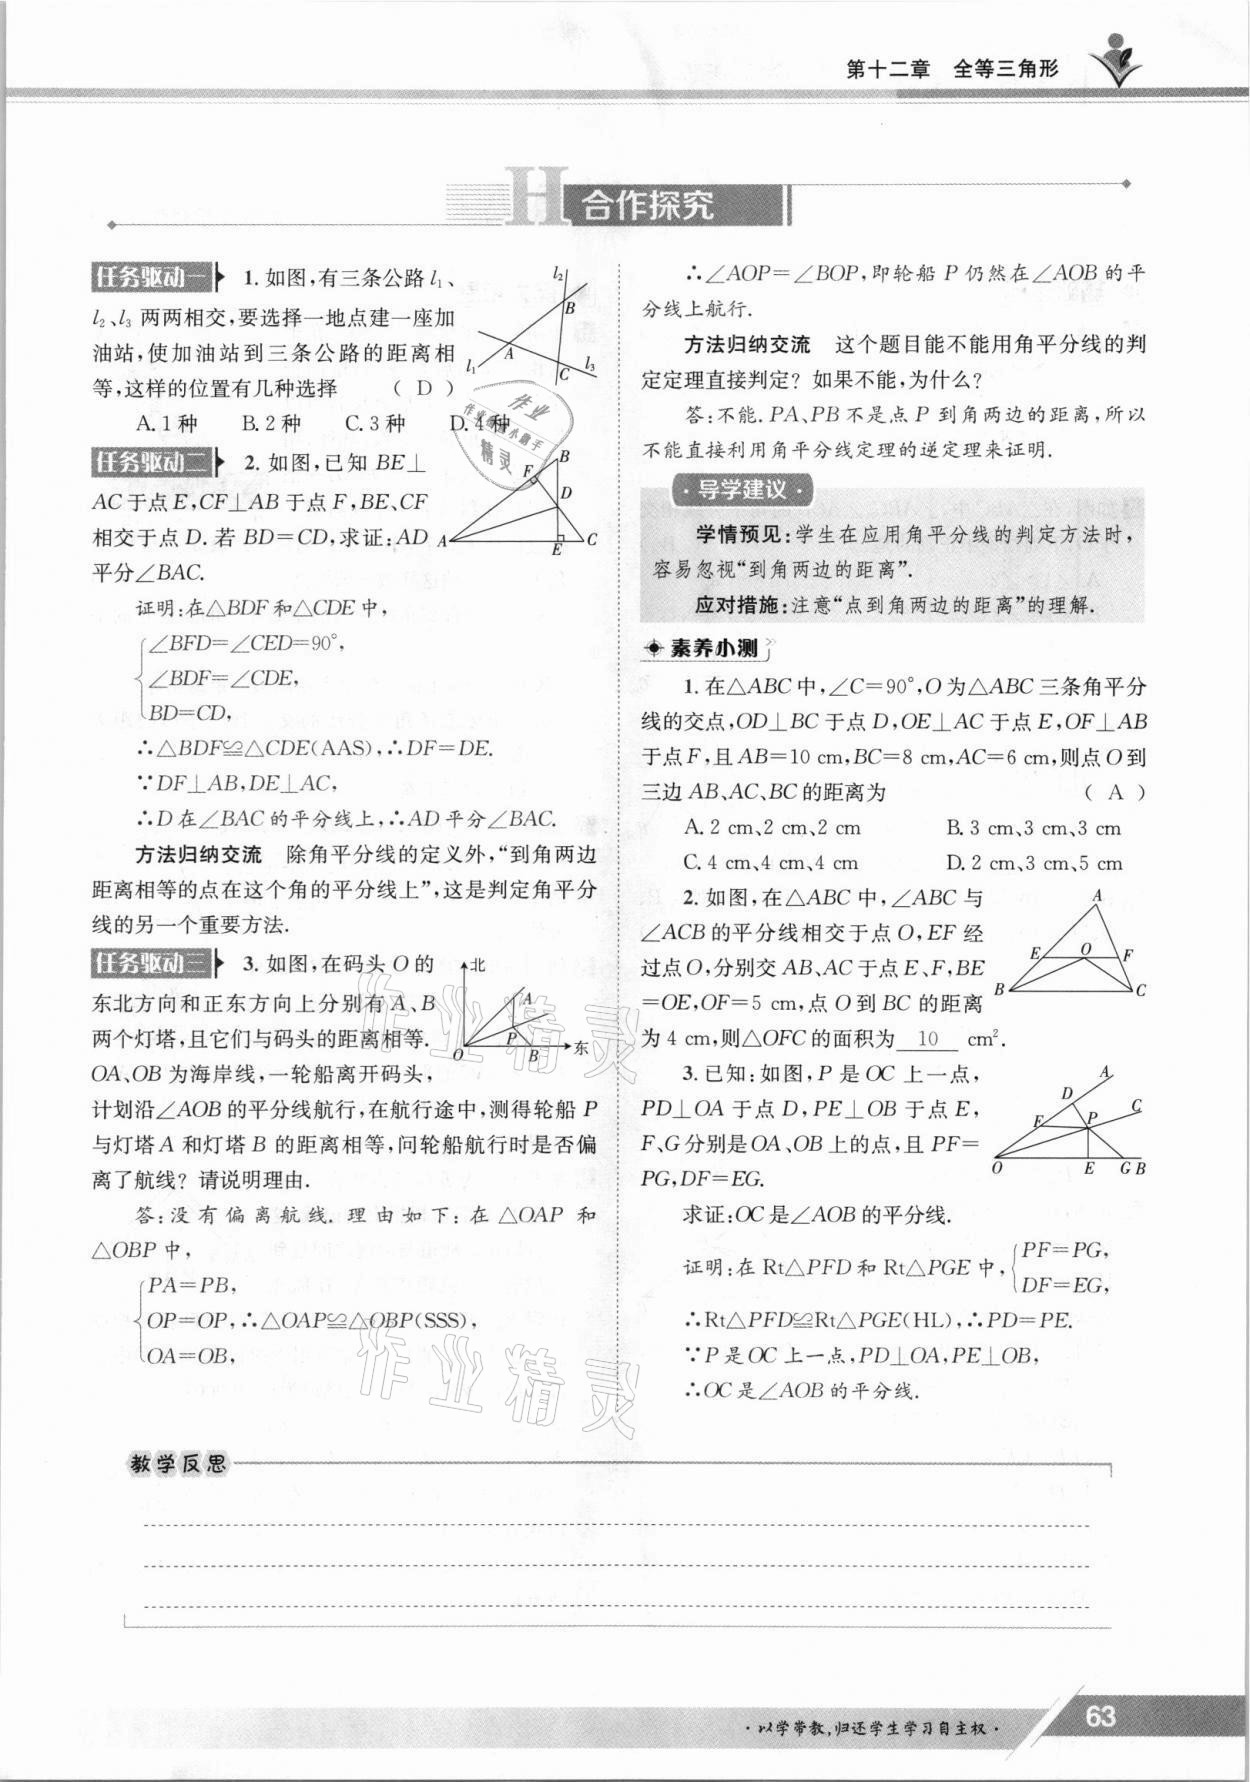 第十二章　全等三角形
H 合作探究
任务驱动一 1. 如图,有三条公路 l₁、
l₂、l₃ 两两相交,要选择一地点建一座加
油站,使加油站到三条公路的距离相
等,这样的位置有几种选择　( D )
A. 1 种　B. 2 种　C. 3 种　D. 4 种
l₂
B
A
l₁
C
l₃
任务驱动二 2. 如图,已知 BE⊥
AC 于点 E,CF⊥AB 于点 F,BE、CF
相交于点 D. 若 BD=CD,求证:AD
平分∠BAC.
B
F
D
A
E
C
证明:在△BDF 和△CDE 中,
∠BFD=∠CED=90°,
∠BDF=∠CDE,
BD=CD,
∴△BDF≌△CDE(AAS),∴DF=DE.
∵DF⊥AB,DE⊥AC,
∴D 在∠BAC 的平分线上,∴AD 平分∠BAC.
方法归纳交流　除角平分线的定义外,“到角两边
距离相等的点在这个角的平分线上”,这是判定角平分
线的另一个重要方法.
任务驱动三 3. 如图,在码头 O 的
东北方向和正东方向上分别有 A、B
两个灯塔,且它们与码头的距离相等.
OA、OB 为海岸线,一轮船离开码头,
计划沿∠AOB 的平分线航行,在航行途中,测得轮船 P
与灯塔 A 和灯塔 B 的距离相等,问轮船航行时是否偏
离了航线? 请说明理由.
北
A
P
O
B
东
答:没有偏离航线. 理由如下:在△OAP 和
△OBP 中,
PA=PB,
OP=OP,∴△OAP≌△OBP(SSS),
OA=OB,
∴∠AOP=∠BOP,即轮船 P 仍然在∠AOB 的平
分线上航行.
方法归纳交流　这个题目能不能用角平分线的判
定定理直接判定? 如果不能,为什么?
答:不能. PA、PB 不是点 P 到角两边的距离,所以
不能直接利用角平分线定理的逆定理来证明.
· 导学建议 ·
学情预见:学生在应用角平分线的判定方法时,
容易忽视“到角两边的距离”.
应对措施:注意“点到角两边的距离”的理解.
素养小测
1. 在△ABC 中,∠C=90°,O 为△ABC 三条角平分
线的交点,OD⊥BC 于点 D,OE⊥AC 于点 E,OF⊥AB
于点 F,且 AB=10 cm,BC=8 cm,AC=6 cm,则点 O 到
三边 AB、AC、BC 的距离为　( A )
A. 2 cm、2 cm、2 cm　B. 3 cm、3 cm、3 cm
C. 4 cm、4 cm、4 cm　D. 2 cm、3 cm、5 cm
2. 如图,在△ABC 中,∠ABC 与
∠ACB 的平分线相交于点 O,EF 经
过点 O,分别交 AB、AC 于点 E、F,BE
=OE,OF=5 cm,点 O 到 BC 的距离
为 4 cm,则△OFC 的面积为 10 cm².
A
E
O
F
B
C
3. 已知:如图,P 是 OC 上一点,
PD⊥OA 于点 D,PE⊥OB 于点 E,
F、G 分别是 OA、OB 上的点,且 PF=
PG,DF=EG.
A
D
C
F
P
O
E
G
B
求证:OC 是∠AOB 的平分线.
证明:在 Rt△PFD 和 Rt△PGE 中,
PF=PG,
DF=EG,
∴Rt△PFD≌Rt△PGE(HL),∴PD=PE.
∵P 是 OC 上一点,PD⊥OA,PE⊥OB,
∴OC 是∠AOB 的平分线.
教学反思
· 以学带教,归还学生学习自主权 ·
63
作业
精灵
作业精灵
作业精灵